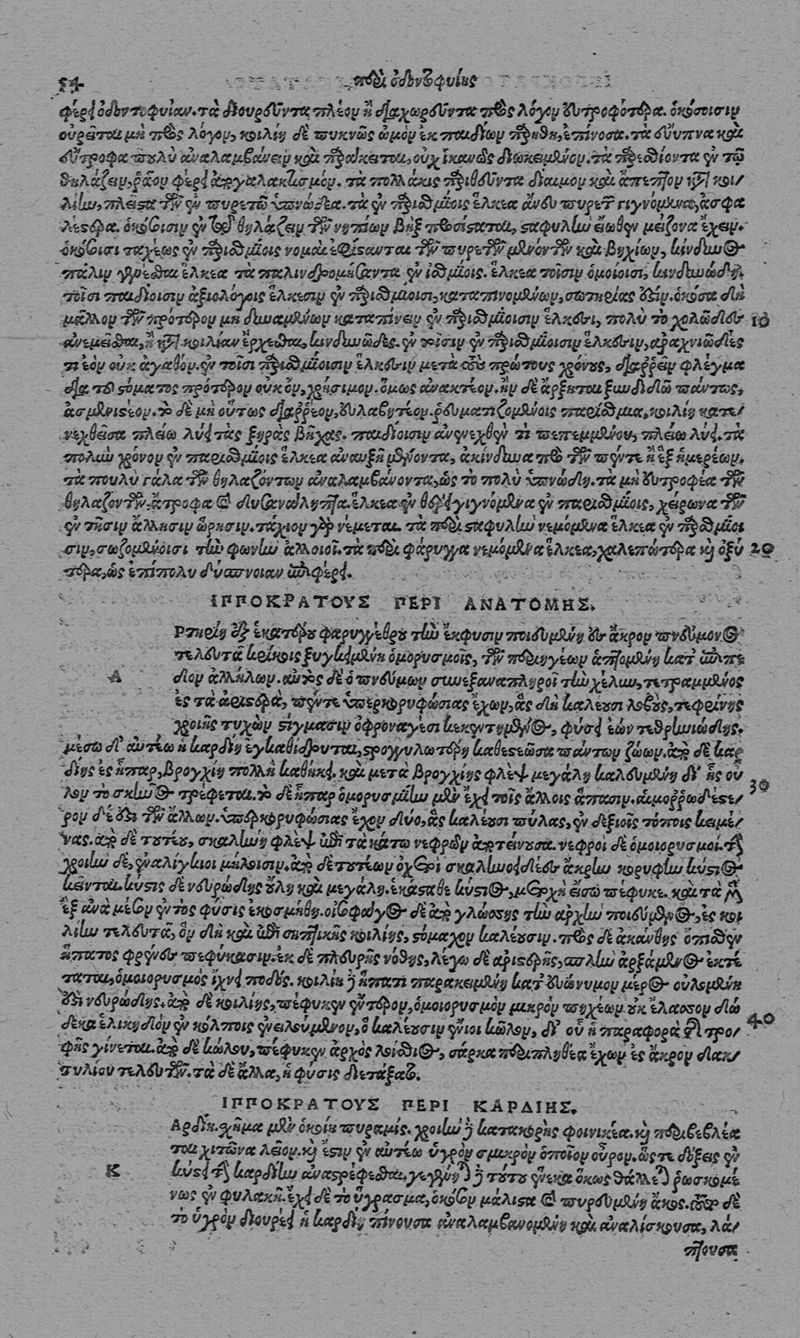 54 περὶ ὀδοντοφυΐης
φέρει ὀδοντοφυΐαν. τὰ διουρεῦντα πλέον ἢ διαχωρεῦντα πρὸς λόγον εὐτροφότερα. ὁκόσοισιν
οὐρέεται μὴ πρὸς λόγον, κοιλίη δὲ πυκνῶς ὠμὸν ἐκ παιδίων προίησι, ἐπίνοσα. τὰ εὔυπνα καὶ
εὔτροφα πουλὺ ἀναλαμβάνειν καὶ παράκειται, οὐχ ἱκανῶς διωκειμένον. τὰ παρεσθίοντα ἐν τῷ
θηλάζειν, ῥᾷον φέρει ἀπογαλακτισμόν. τὰ πολλάκις παριεῦντα δίαιμον καὶ ἄπεπτον κατὰ κοι/
λίην, πλεῖστα τῶν ἐν πυρετῷ ὑπνώδεα. τὰ ἐν παρισθμίοις ἕλκεα ἄνευ πυρετῶν γιγνόμενα, ἀσφα
λέστερα. ὁκόσοισιν ἐν τῷ θηλάζειν τῶν νηπίων βὴξ προσίσταται, σταφυλὴν εἴωθεν μείζονα ἔχειν.
ὁκόσοισι ταχέως ἐν παρισθμίοις νομαὶ ἐφίστανται τῶν πυρετῶν μενόντων καὶ βηχίων, κίνδυνος
πάλιν γενέσθαι ἕλκεα τὰ παλινδρομήσαντα ἐν ἰσθμίοις. ἕλκεα τοῖσιν ὁμοίοισι, κινδυνώδη.
τοῖσι παιδίοισιν ἀξιολόγοις ἕλκεσιν ἐν παρισθμίοισι, καταπινομένων, σωτηρίας ἐστίν. ὁκόσα δὴ
μᾶλλον τῶν πρότερον μὴ δυναμένων καταπίνειν ἐν παρισθμίοισιν ἕλκεσι, πολὺ τὸ χολῶδες 10
ἀνεμεῖσθαι, ἢ κατὰ κοιλίην ἔρχεσθαι, κινδυνῶδες. ἐν τοῖσιν ἐν παρισθμίοισιν ἕλκεσιν, ἀραχνιῶδές
τι ἐὸν οὐκ ἀγαθόν. ἐν τοῖσι παρισθμίοισιν ἕλκεσιν μετὰ τοὺς πρώτους χρόνους, διαρρεῖν φλέγμα
διὰ τοῦ στόματος πρότερον οὐκ ὂν, χρήσιμον. ὅμως ἀνακτέον. ἢν δὲ ἄρξηται ξυνδιδῷ πάντως,
ἀσμενιστέον. τὸ δὲ μὴ οὕτως διαρρέον, εὐλαβητέον. ῥευματιζομένοις παρίσθμια, κοιλίη κατε/
νεχθεῖσα πλείω λύει τὰς ξηρὰς βῆχας. παιδίοισιν ἀνενεχθέν τι πεπεμμένον, πλείω λύει. τὰ
πολὺν χρόνον ἐν παρισθμίοις ἕλκεα ἀναυξῆ μένοντα, ἀκίνδυνα πρὸ τῶν πέντε ἢ ἓξ ἡμερέων.
τὰ πουλὺ γάλα τῶν θηλαζόντων ἀναλαμβάνοντα, ὡς τὸ πολὺ ὑπνώδη. τὰ μὴ εὐτροφέα τῶν
θηλαζόντων, ἄτροφα καὶ δυσανάληπτα. ἕλκεα ἐν θέρει γιγνόμενα ἐν παρισθμίοις, χείρονα τῶν
ἐν τῇσιν ἄλλῃσιν ὥρῃσιν. τάχιον γὰρ νέμεται. τὰ περὶ σταφυλὴν νεμόμενα ἕλκεα ἐν παρισθμίοι
σιν, σωζομένοισι τὴν φωνὴν ἀλλοιοῖ. τὰ περὶ φάρυγγα νεμόμενα ἕλκεα, χαλεπώτερα καὶ ὀξύ 20
τερα, ὡς ἐπίπολυ δύσπνοιαν ἐπιφέρει.
ΙΠΠΟΚΡΑΤΟΥΣ ΠΕΡΙ ΑΝΑΤΟΜΗΣ.
Α Ρτηρίη ἐξ ἑκατέρου φαρυγγέθρου τὴν ἔκφυσιν ποιευμένη ἐς ἄκρον πνεύμονος
τελευτᾷ κρίκοις ξυγκειμένη ὁμορυσμοῖς, τῶν περιηγέων ἁπτομένη κατ᾽ ἐπίπε
δον ἀλλήλων. αὐτὸς δὲ ὁ πνεύμων συνεξαναπληροῖ τὴν χέλυν, τετραμμένος
ἐς τὰ ἀριστερά, πέντε ὑπερκορυφώσιας ἔχων, ἃς δὴ καλέουσι λοβούς, τεφρίνης
χροιῆς τυχὼν στίγμασιν ὀφρυοειδέσι κεκεντημένος, φύσει ἐὼν τενθρηνιώδης.
μέσῳ δ᾽ αὐτέῳ ἡ καρδίη ἐγκαθίδρυται, στρογγυλωτέρη καθεστεῶσα πάντων ζώων. ἀπὸ δὲ καρ
δίης ἐς ἧπαρ, βρογχίη πολλὴ καθήκει. καὶ μετὰ βρογχίης φλὲψ μεγάλη καλευμένη δι᾽ ἧς οὗ
λον τὸ σκῆνος τρέφεται. τὸ δὲ ἧπαρ ὁμορυσμίην μὲν ἔχει τοῖς ἄλλοις ἅπασιν. αἱμορρωδέστε/ 30
ρον δέ ἐστι τῶν ἄλλων. ὑπερκορυφώσιας ἔχον δύο, ἃς καλέουσι πύλας, ἐν δεξιοῖς τόποις κειμέ/
νας. ἀπὸ δὲ τουτέου, σκαληνὴ φλὲψ ἐπὶ τὰ κάτω νεφρῶν ἀποτείνουσα. νεφροὶ δὲ ὁμοιορυσμοί. τὴν
χροιὴν δὲ, ἐναλίγκιοι μήλοισιν. ἀπὸ δὲ τουτέων ὀχετοὶ σκαληνοειδέες ἄκρην κορυφὴν κύστιος
κέονται. κύστις δὲ νευρώδης ὅλη καὶ μεγάλη. ἑκάθεν κύστιος, μετοχὴ εἴσω πέφυκε. καὶ τὰ μὲν
ἓξ ἀνὰ μέσον ἐντὸς φύσις ἐκοσμήθη. οἰσοφάγος δὲ ἀπὸ γλώσσης τὴν ἀρχὴν ποιεύμενος, ἐς κοι
λίην τελευτᾷ, ὃν δὴ καὶ ἐπὶ σηπτικῆς κοιλίης, στόμαχον καλέουσιν. πρὸς δὲ ἀκάνθης ὄπισθεν
ἥπατος φρένες πεφύκασιν. ἐκ δὲ πλευρῆς νόθης, λέγω δὲ ἀριστερῆς, σπλὴν ἀρξάμενος ἐκτέ
ταται, ὁμοιορυσμὸς ἴχνει ποδός. κοιλίη δὲ ἥπατι παρακειμένη κατ᾽ εὐώνυμον μέρος οὐλομένη
ἐστὶ νευρώδης. ἀπὸ δὲ κοιλίης, πέφυκεν ἔντερον, ὁμοιορυσμὸν μικρὸν πηχέων. οὐκ ἔλασσον δυώ
δεκα ἑλικηδὸν ἐν κόλποις ἐνειλούμενον, ὃ καλέουσιν ἔνιοι κῶλον, δι᾽ οὗ ἡ παραφορὰ τῆς τρο/ 40
φῆς γίνεται. ἀπὸ δὲ κώλου, πέφυκεν ἀρχὸς λοίσθιος, σάρκα περιπληθέα ἔχων ἐς ἄκρον δακ/
τυλίου τελευτῶν. τὰ δὲ ἄλλα, ἡ φύσις διέταξατο.
ΙΠΠΟΚΡΑΤΟΥΣ ΠΕΡΙ ΚΑΡΔΙΗΣ.
Κ Αρδίη. σχῆμα μὲν ὁκοίη πυραμίς. χροιὴν δὲ κατακορὴς φοινικέα. καὶ περιβεβλέα
ται χιτῶνα λεῖον. καὶ ἔστιν ἐν αὐτέῳ ὑγρὸν σμικρὸν ὁποῖον οὖρον. ὥστε δόξεις ἐν
κύστει τὴν καρδίην ἀναστρέφεσθαι. γεγένηται δὲ τούτου ἕνεκα ὅκως θάλληται ῥωσκομέ
νως ἐν φυλακῇ. ἔχει δὲ τὸ ὕγρασμα, ὁκόσον μάλιστα καὶ πυρευμένῃ ἄκος. τοῦτο δὲ
τὸ ὑγρὸν διουρέει ἡ καρδίη πίνουσα ἀναλαμβανομένη καὶ ἀναλίσκουσα, λά/
πτουσα